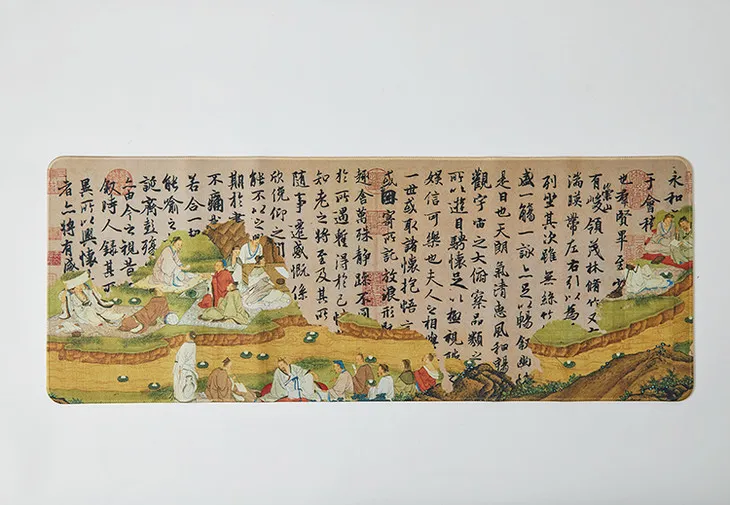 永和
于會稽
也羣賢畢至少
有崇山峻領茂林脩竹又
湍暎帶左右引以為
列坐其次雖無絲竹
盛一觴一詠亦足以暢敘幽情
是日也天朗氣清惠風和暢
觀宇宙之大俯察品類之
所以遊目騁懷足以極視聽
娛信可樂也夫人之相與
一世或取諸懷抱悟言
或因寄所託放浪形
趣舍萬殊靜躁不同
於所遇蹔得於己
知老之將至及其所
隨事遷感慨係
欣俛仰之間
能不以之
期於
不痛
若合一
能喻之
誕齊彭殤
亦由今之視昔
敘時人錄其所
異所以興懷
者亦將有感